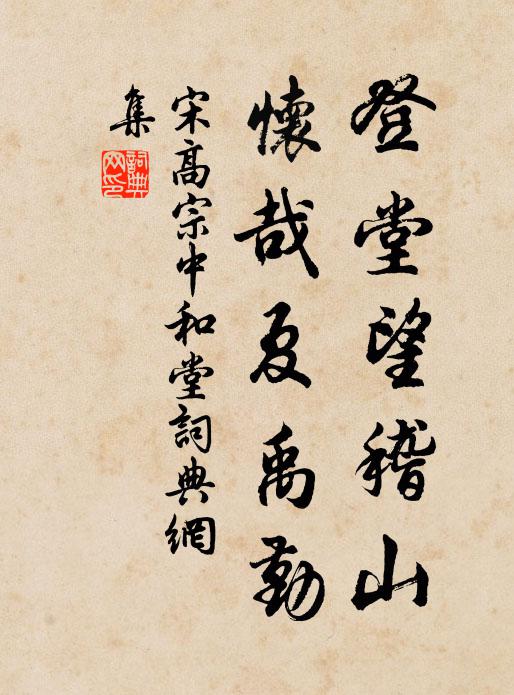 登堂望稽山
懷哉夏禹勤
宋高宗中和堂詞典網
集
詞典
网印